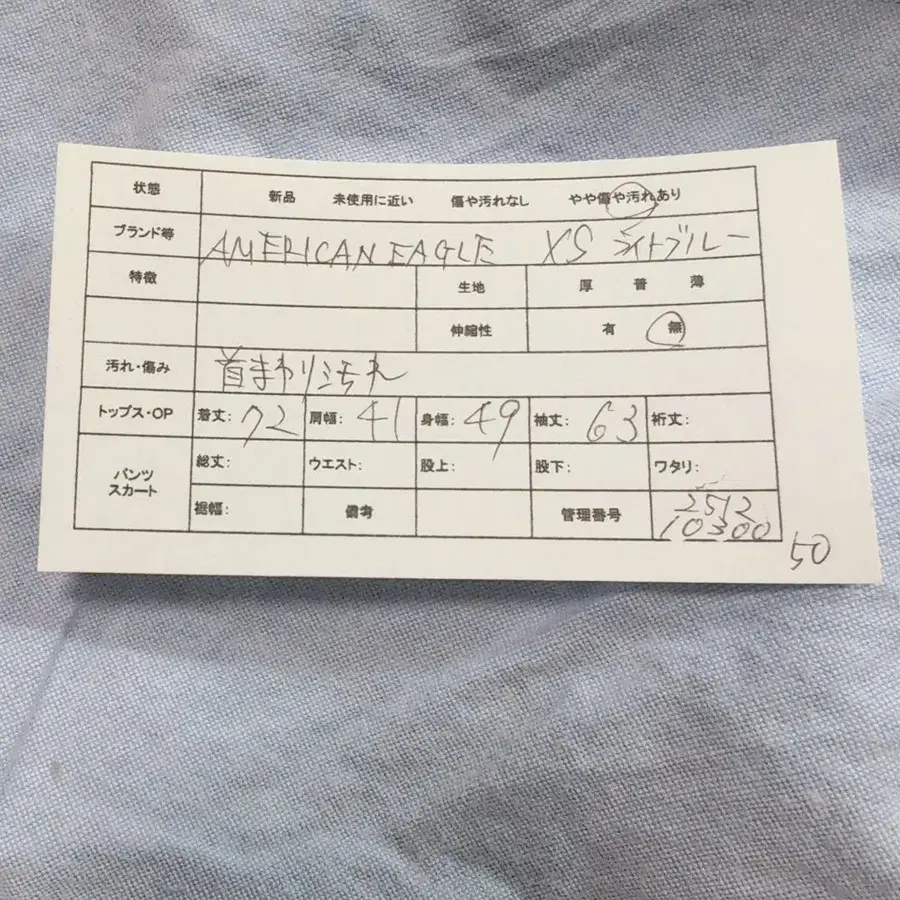 状態 新品 未使用に近い 傷や汚れなし やや傷や汚れあり
ブランド等 AMERICAN EAGLE XS ライトブルー
特徴 生地 厚 普 薄
伸縮性 有 無
汚れ・傷み 首まわり汚れ
トップス・OP 着丈: 72 肩幅: 41 身幅: 49 袖丈: 63 裄丈:
パンツ スカート 総丈: ウエスト: 股上: 股下: ワタリ:
裾幅: 備考 管理番号 2512
10300
50